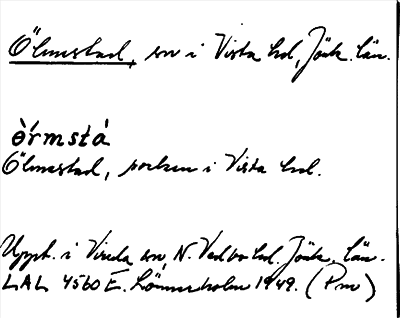 Ölmstad, sn i Vista hd, Jönk. län.
òrmstá
Ölmstad, socken i Vista hd.
Uppt. i Vireda sn, N. Vedbo hd. Jönk. län.
LAL 4560 E. Lönnerholm 1949. (Pm)